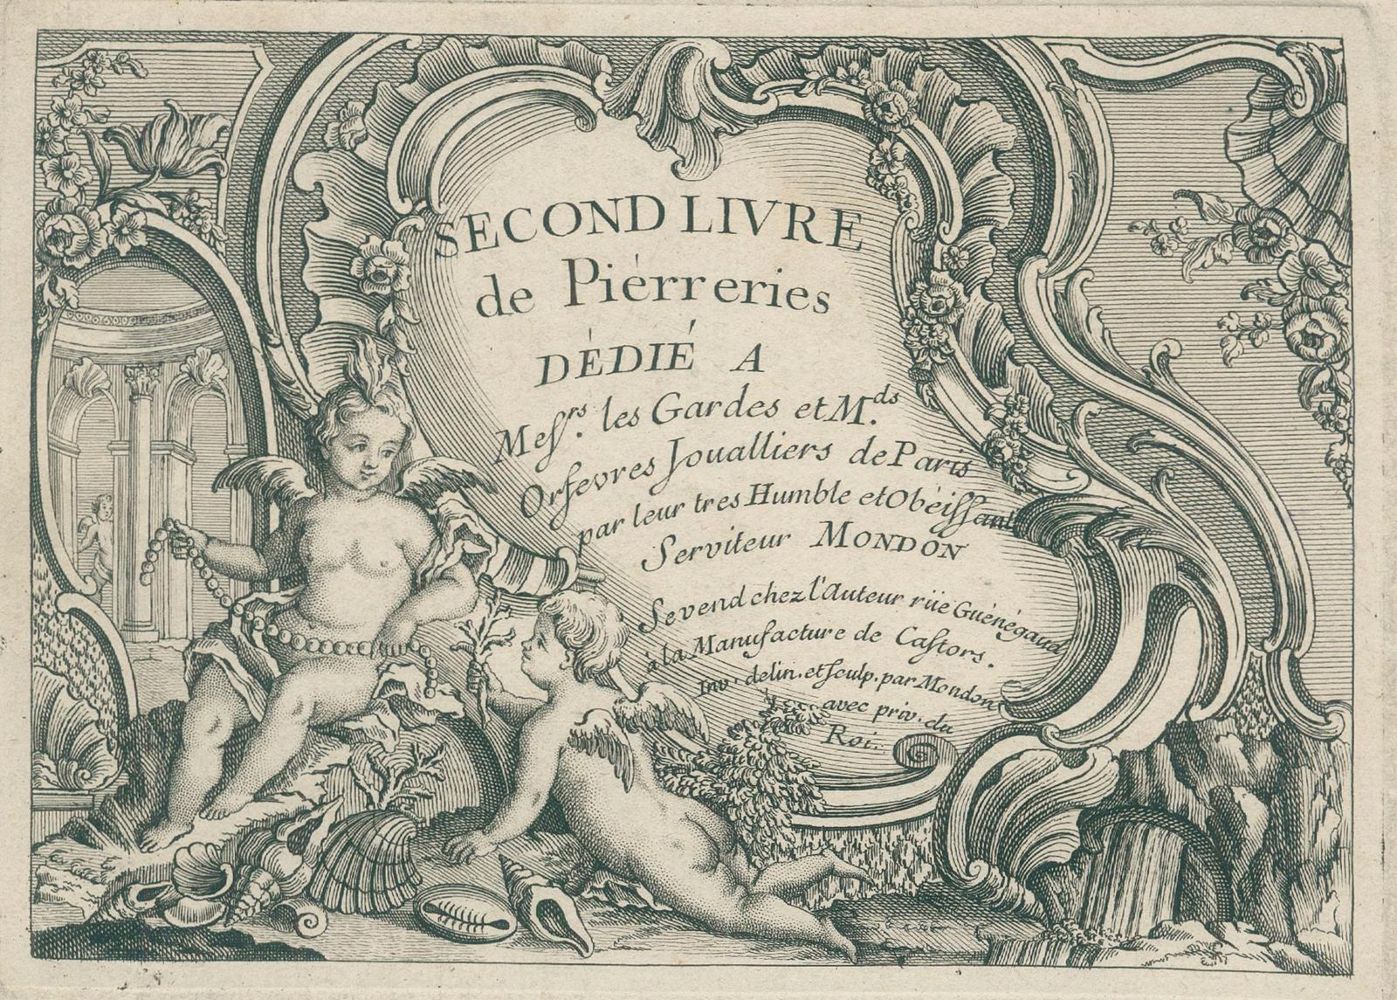 SECOND LIVRE
de Piérreries
DÈDIÉ A
Meſ.rs les Gardes et M.ds
Orfevres Joualliers de Paris
par leur tres Humble et Obéiſſant
Serviteur MONDON
Se vend chez l'Auteur rüe Guénégaud
à la Manufacture de Caſtors.
Inv. delin. et ſculp. par Mondon
avec priv. du
Roi.